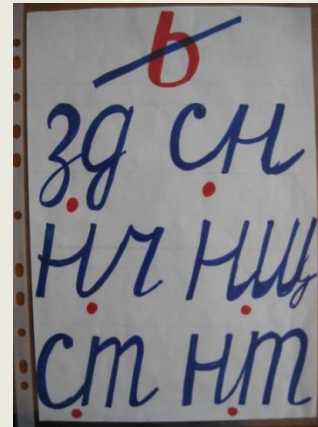 ь
зд сн
нч нщ
ст нт